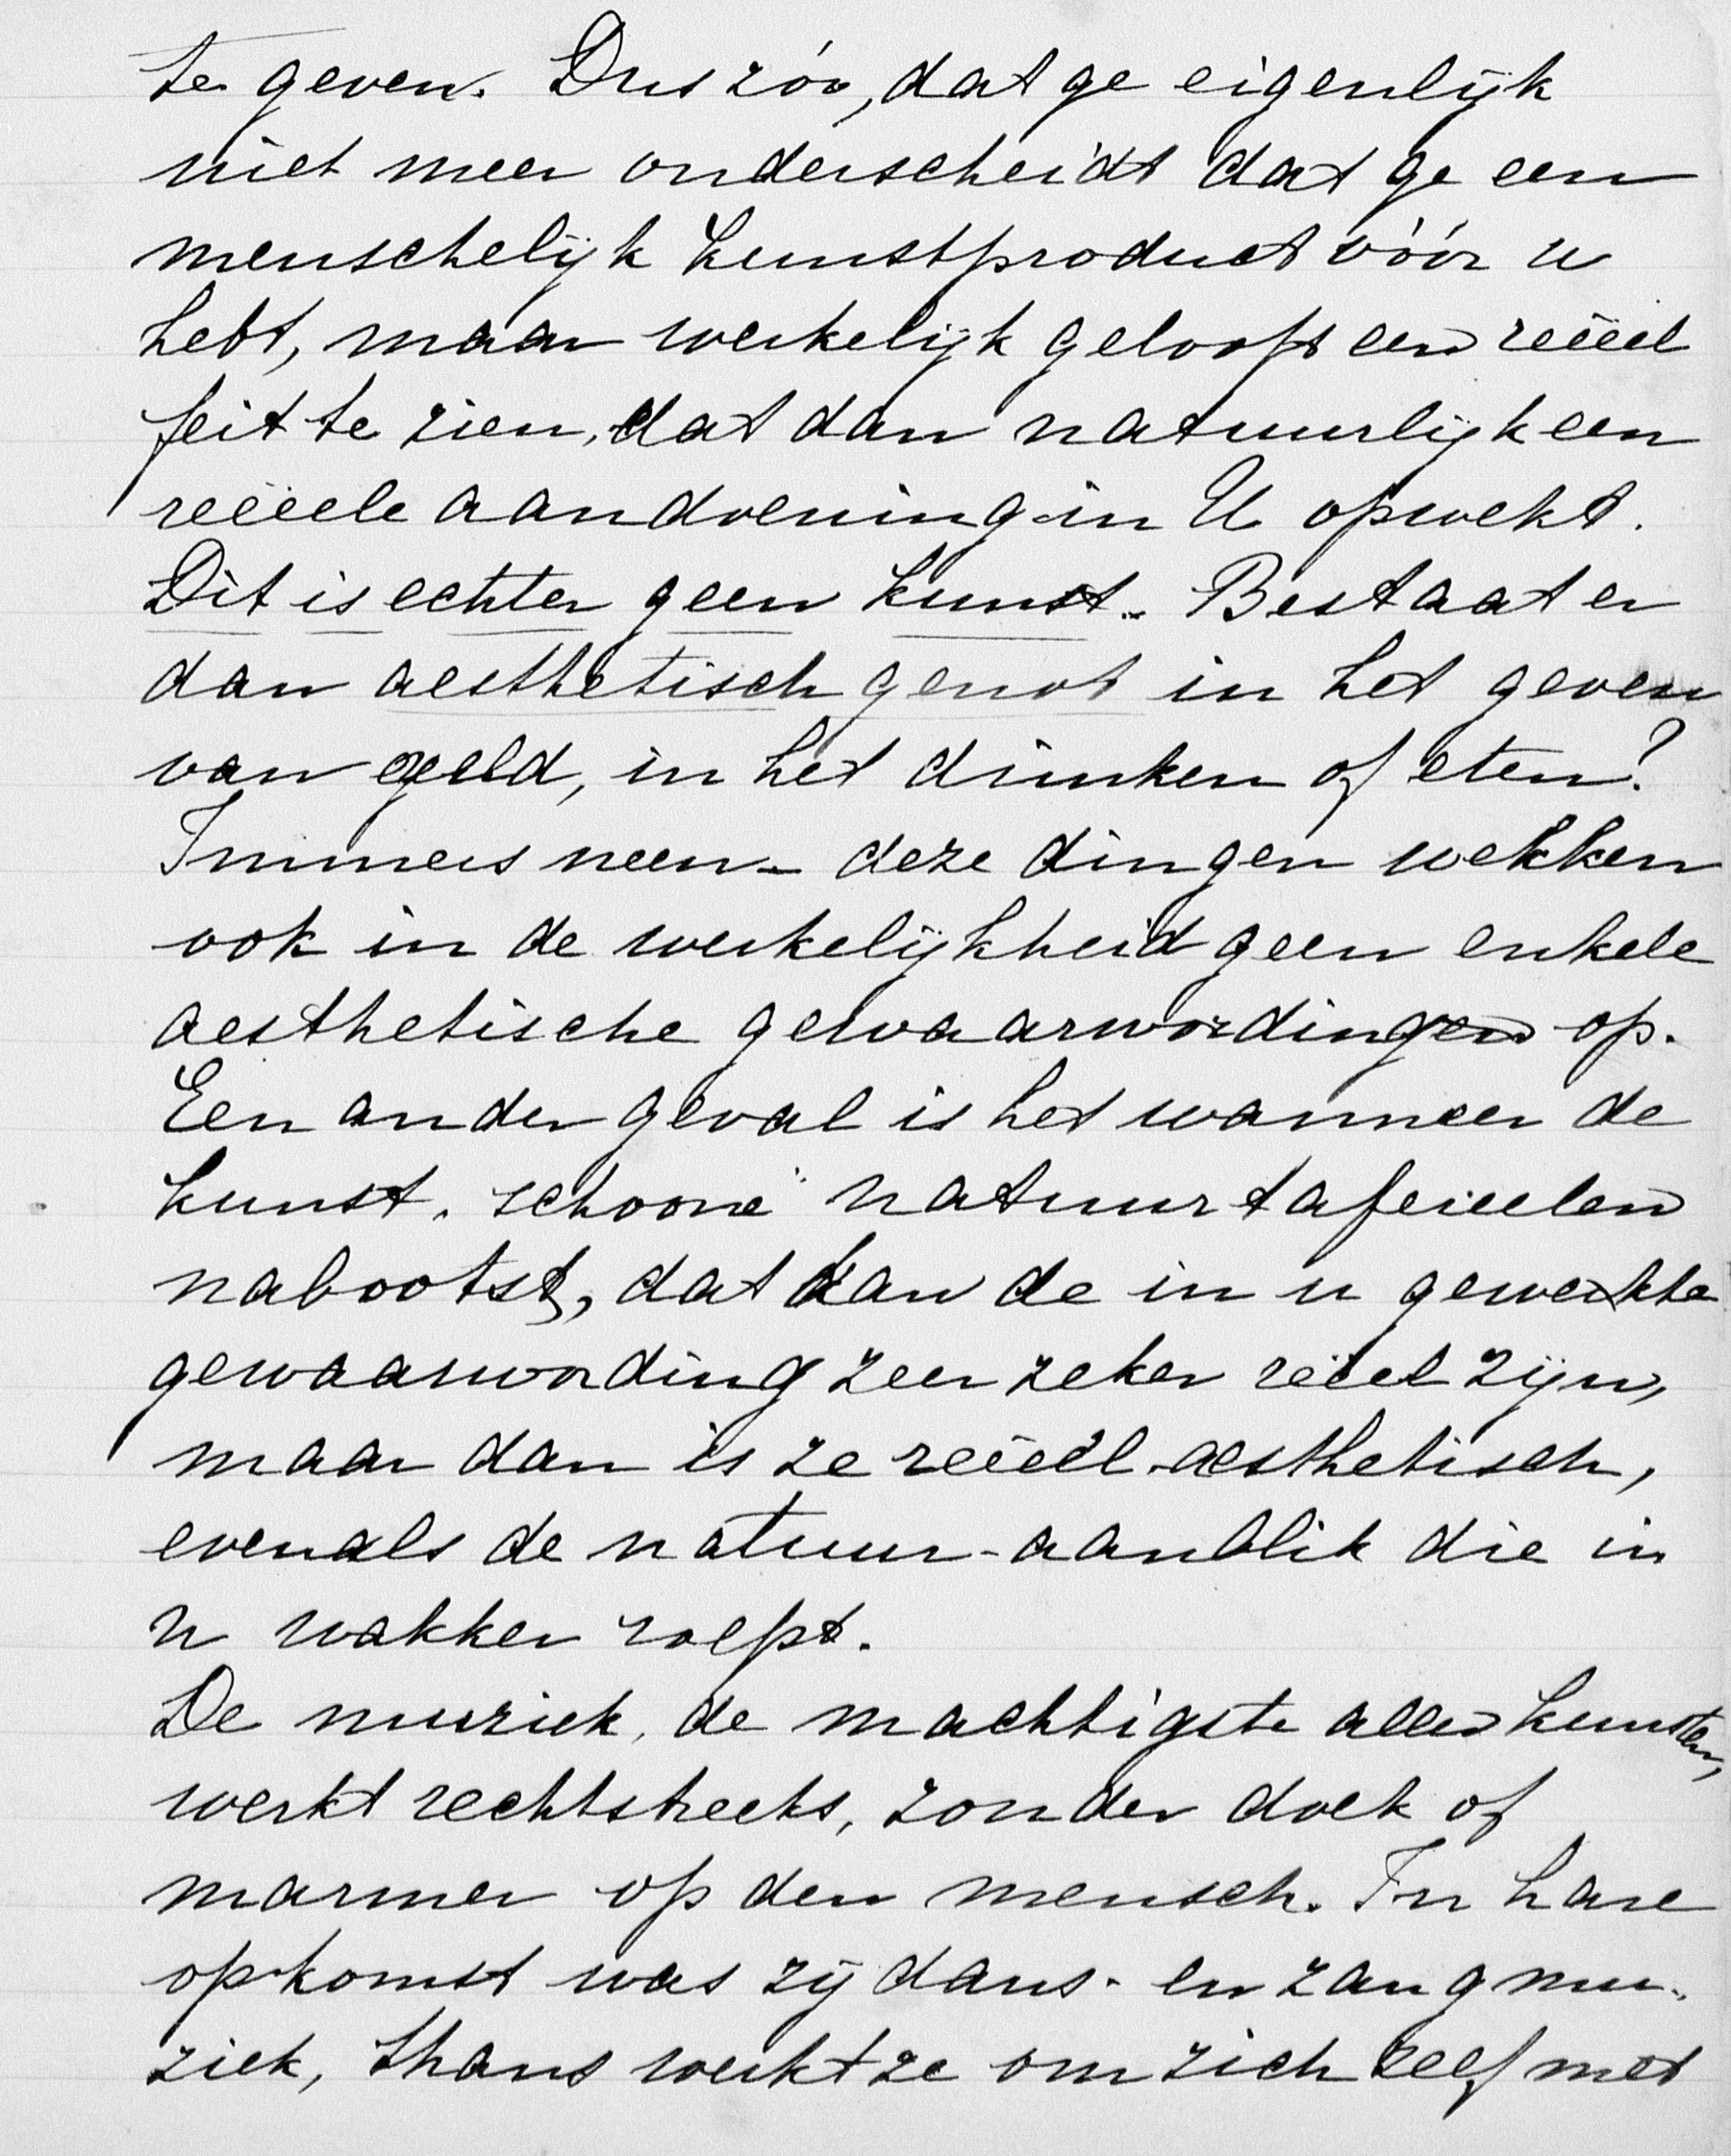 te geven. Dus zóó, dat ge eigenlijk
niet meer onderscheidt dat ge een
menschelijk kunstproduct vóór u
hebt, maar werkelijk gelooft een reëel
feit te zien, dat dan natuurlijk een
reëele aandoening in U opwekt.
Dit is echter geen kunst. Bestaat er
dan aesthetisch genot in het geven
van geld, in het drinken of eten?
Immers neen - deze dingen wekken
ook in de werkelijkheid geen enkele
aesthetische gewaarwordingen op.
Een ander geval is het wanneer de
kunst, schoone natuurtafereelen
nabootst, dat kan de in u gewekte
gewaarwording zeer zeker reëel zijn,
maar dan is ze reëel-aesthetisch,
evenals de natuur-aanblik die in
u wakker roept.
De muziek, de machtigste aller kunsten,
werkt rechtstreeks, zonder doek of
marmer op den mensch. In hare
opkomst was zij dans- en zangmu-
ziek, thans werkt ze om zich zelf met